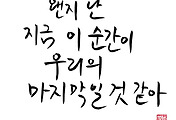 왠지 난
지금 이 순간이
우리의
마지막일 것 같아